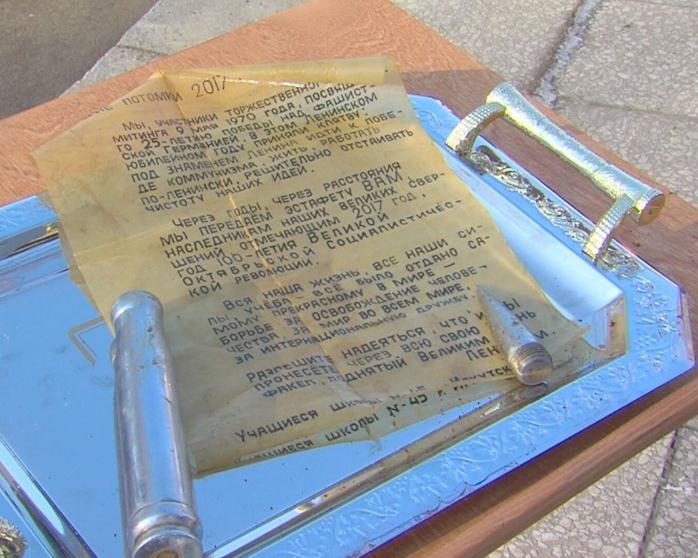 потомки 2017
Мы, участники торжественного
митинга 9 мая 1970 года, посвящ
го 25-летию победы над фашист-
ской Германией в этом Ленинском
юбилейном году приняли клятву
под знаменем Ленина идти к побе-
де коммунизма, жить, работать
по-ленински, решительно отстаивать
чистоту наших идей.
Через годы, через расстояния
мы передаем эстафету Вам,
наследникам наших великих свер-
шений отмечающим 2017 год –
год 100-летия Великой
Октябрьской Социалистичес-
кой революции.
Вся наша жизнь, все наши си-
лы, учеба – все было отдано са-
мому прекрасному в мире –
борьбе за освобождение челове-
чества, за мир во всем мире,
за интернациональную дружбу.
Разрешите надеяться, что и
пронесете через всю свою
факел, поднятый Великим
Учащиеся школы
Учащиеся школы N-45 г.